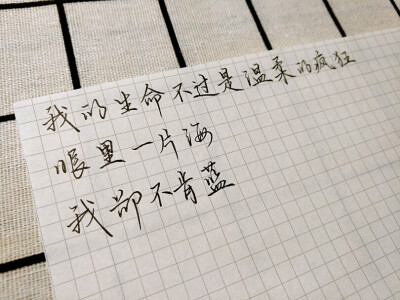 我的生命不过是温柔的疯狂
眼里一片海
我却不肯蓝